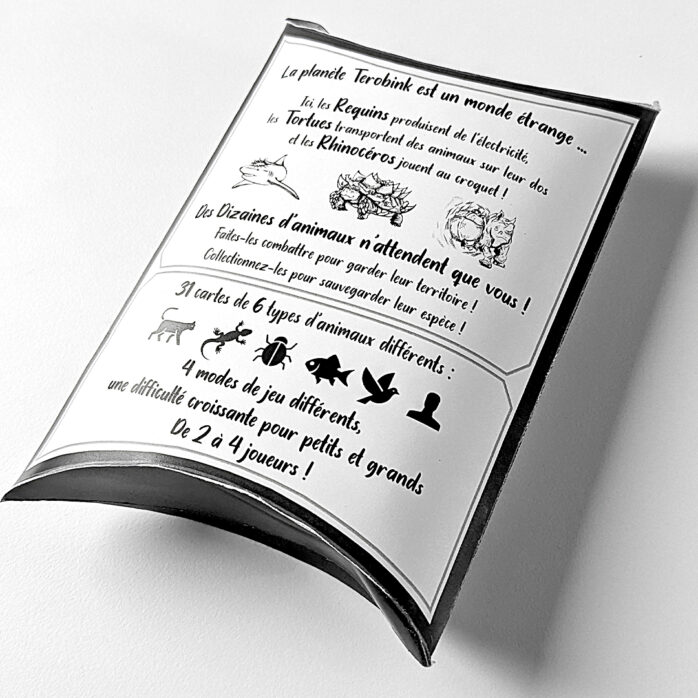 La planète Terobink est un monde étrange ...
Ici, les Requins produisent de l'électricité,
les Tortues transportent des animaux sur leur dos
et les Rhinocéros jouent au croquet !
Des Dizaines d'animaux n'attendent que vous !
Faites-les combattre pour garder leur territoire !
Collectionnez-les pour sauvegarder leur espèce !
31 cartes de 6 types d'animaux différents :
4 modes de jeu différents,
une difficulté croissante pour petits et grands
De 2 à 4 joueurs !